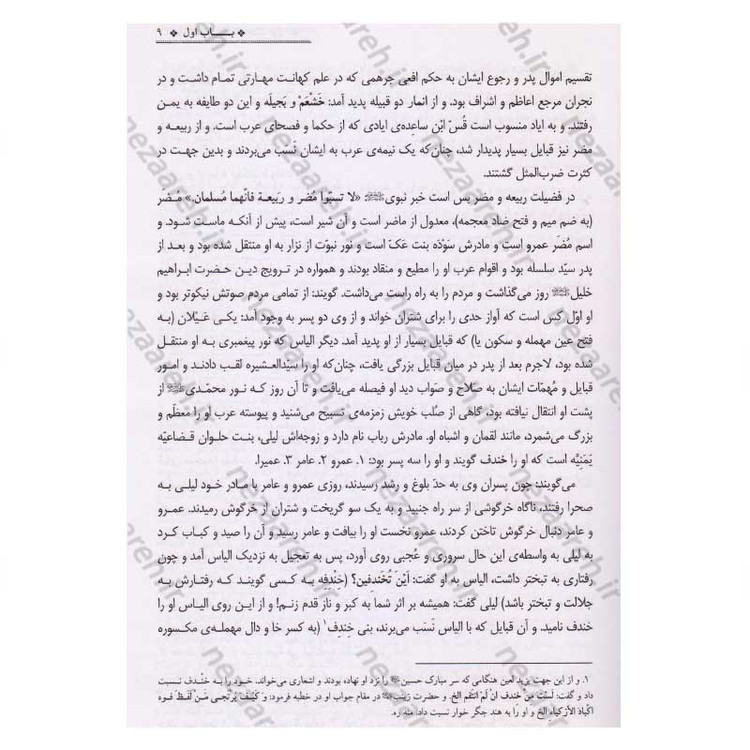 ❖ بـــاب اول ❖ ۹
تقسیم اموال پدر و رجوع ایشان به حکم افعی جرهمی که در علم کهانت مهارتی تمام داشت و در
نجران مرجع اعاظم و اشراف بود. و از انمار دو قبیله پدید آمد: خَثْعَمْ و بَجیلَه و این دو طایفه به یمن
رفتند. و به ایاد منسوب است قُسّ ابْن ساعِده‌ی ایادی که از حکما و فصحای عرب است. و از ربیعه و
مضر نیز قبایل بسیار پدیدار شد، چنان‌که یک نیمه‌ی عرب به ایشان نَسَب می‌بردند و بدین جهت در
کثرت ضرب‌المثل گشتند.
در فضیلت ربیعه و مضر بس است خبر نبوی «لا تسبّوا مُضر و رَبیعة فانّهما مُسلمان.» مُضَر
(به ضم میم و فتح ضاد معجمه)، معدول از ماضر است و آن شیر است، پیش از آنکه ماست شود. و
اسم مُضَر عمرو است و مادرش سَوْدَه بنت عَکّ است و نور نبوّت از نزار به او منتقل شده بود و بعد از
پدر سیّد سلسله بود و اقوام عرب او را مطیع و منقاد بودند و همواره در ترویج دین حضرت ابراهیم
خلیل روز می‌گذاشت و مردم را به راه راست می‌داشت. گویند: از تمامی مردم صوتش نیکوتر بود و
او اوّل کس است که آواز حدی را برای شتران خواند و از وی دو پسر به وجود آمد: یکی عَیْلان (به
فتح عین مهمله و سکون یا) که قبایل بسیار از او پدید آمد. دیگر الیاس که نور پیغمبری به او منتقل
شده بود، لاجرم بعد از پدر در میان قبایل بزرگی یافت، چنان‌که او را سیّدالعشیره لقب دادند و امور
قبایل و مُهمّات ایشان به صلاح و صواب دید او فیصله می‌یافت و تا آن روز که نور محمّدی از
پشت او انتقال نیافته بود، گاهی از صُلب خویش زمزمه‌ی تسبیح می‌شنید و پیوسته عرب او را معظّم و
بزرگ می‌شمرد، مانند لقمان و اشباه او. مادرش رباب نام دارد و زوجه‌اش لیلی، بنت حلوان قضاعیّه
یَمَنِیَّه است که او را خندف گویند و او را سه پسر بود: ۱. عمرو ۲. عامر ۳. عمیر.
می‌گویند: چون پسران وی به حدّ بلوغ و رشد رسیدند، روزی عمرو و عامر با مادر خود لیلی به
صحرا رفتند، ناگاه خرگوشی از سر راه جنبید و به یک سو گریخت و شتران از خرگوش رمیدند. عمرو
و عامر دنبال خرگوش تاختن کردند، عمرو نخست او را بیافت و عامر رسید و آن را صید و کباب کرد
به لیلی به واسطه‌ی این حال سروری و عُجبی روی آورد، پس به تعجیل به نزدیک الیاس آمد و چون
رفتاری به تبختر داشت، الیاس به او گفت: اَیْنَ تُخَنْدِفین؟ (خِنْدِفِه به کسی گویند که رفتارش به
جلالت و تبختر باشد) لیلی گفت: همیشه بر اثر شما به کبر و ناز قدم زنم! و از این روی الیاس او را
خندف نامید. و آن قبایل که با الیاس نَسَب می‌برند، بنی خِندِف۱ (به کسر خا و دال مهمله‌ی مکسوره
۱. و از این جهت یزید لعین هنگامی که سر مبارک حسین را نزد او نهاده، بودند و اشعاری می‌خواند، خود را به خَنْدف نسبت
داد و گفت: لَستُ مِنْ خندف اِنْ لَمْ اَنتقم الخ. و حضرت زینب در مقام جواب او در خطبه فرمود: وَ کَیْفَ یُرتَجی مَنْ لَفَظَ فوه
اکبادَ الاَزْکیاءِ الخ و او را به هند جگر خوار نسبت داد. منه ره.
nezaareh.ir